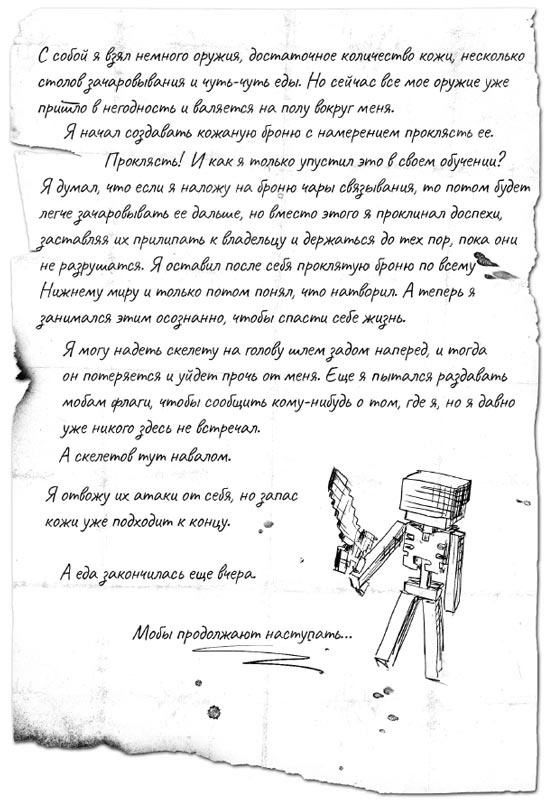 С собой я взял немного оружия, достаточное количество кожи, несколько
столов зачаровывания и чуть-чуть еды. Но сейчас все мое оружие уже
пришло в негодность и валяется на полу вокруг меня.
Я начал создавать кожаную броню с намерением проклясть ее.
Проклясть! И как я только упустил это в своем обучении?
Я думал, что если я наложу на броню чары связывания, то потом будет
легче зачаровывать ее дальше, но вместо этого я проклинал доспехи,
заставляя их прилипать к владельцу и держаться до тех пор, пока они
не разрушатся. Я оставил после себя проклятую броню по всему
Нижнему миру и только потом понял, что натворил. А теперь я
занимался этим осознанно, чтобы спасти себе жизнь.
Я могу надеть скелету на голову шлем задом наперед, и тогда
он потеряется и уйдет прочь от меня. Еще я пытался раздавать
мобам флаги, чтобы сообщить кому-нибудь о том, где я, но я давно
уже никого здесь не встречал.
А скелетов тут навалом.
Я отвожу их атаки от себя, но запас
кожи уже подходит к концу.
А еда закончилась еще вчера.
Мобы продолжают наступать...